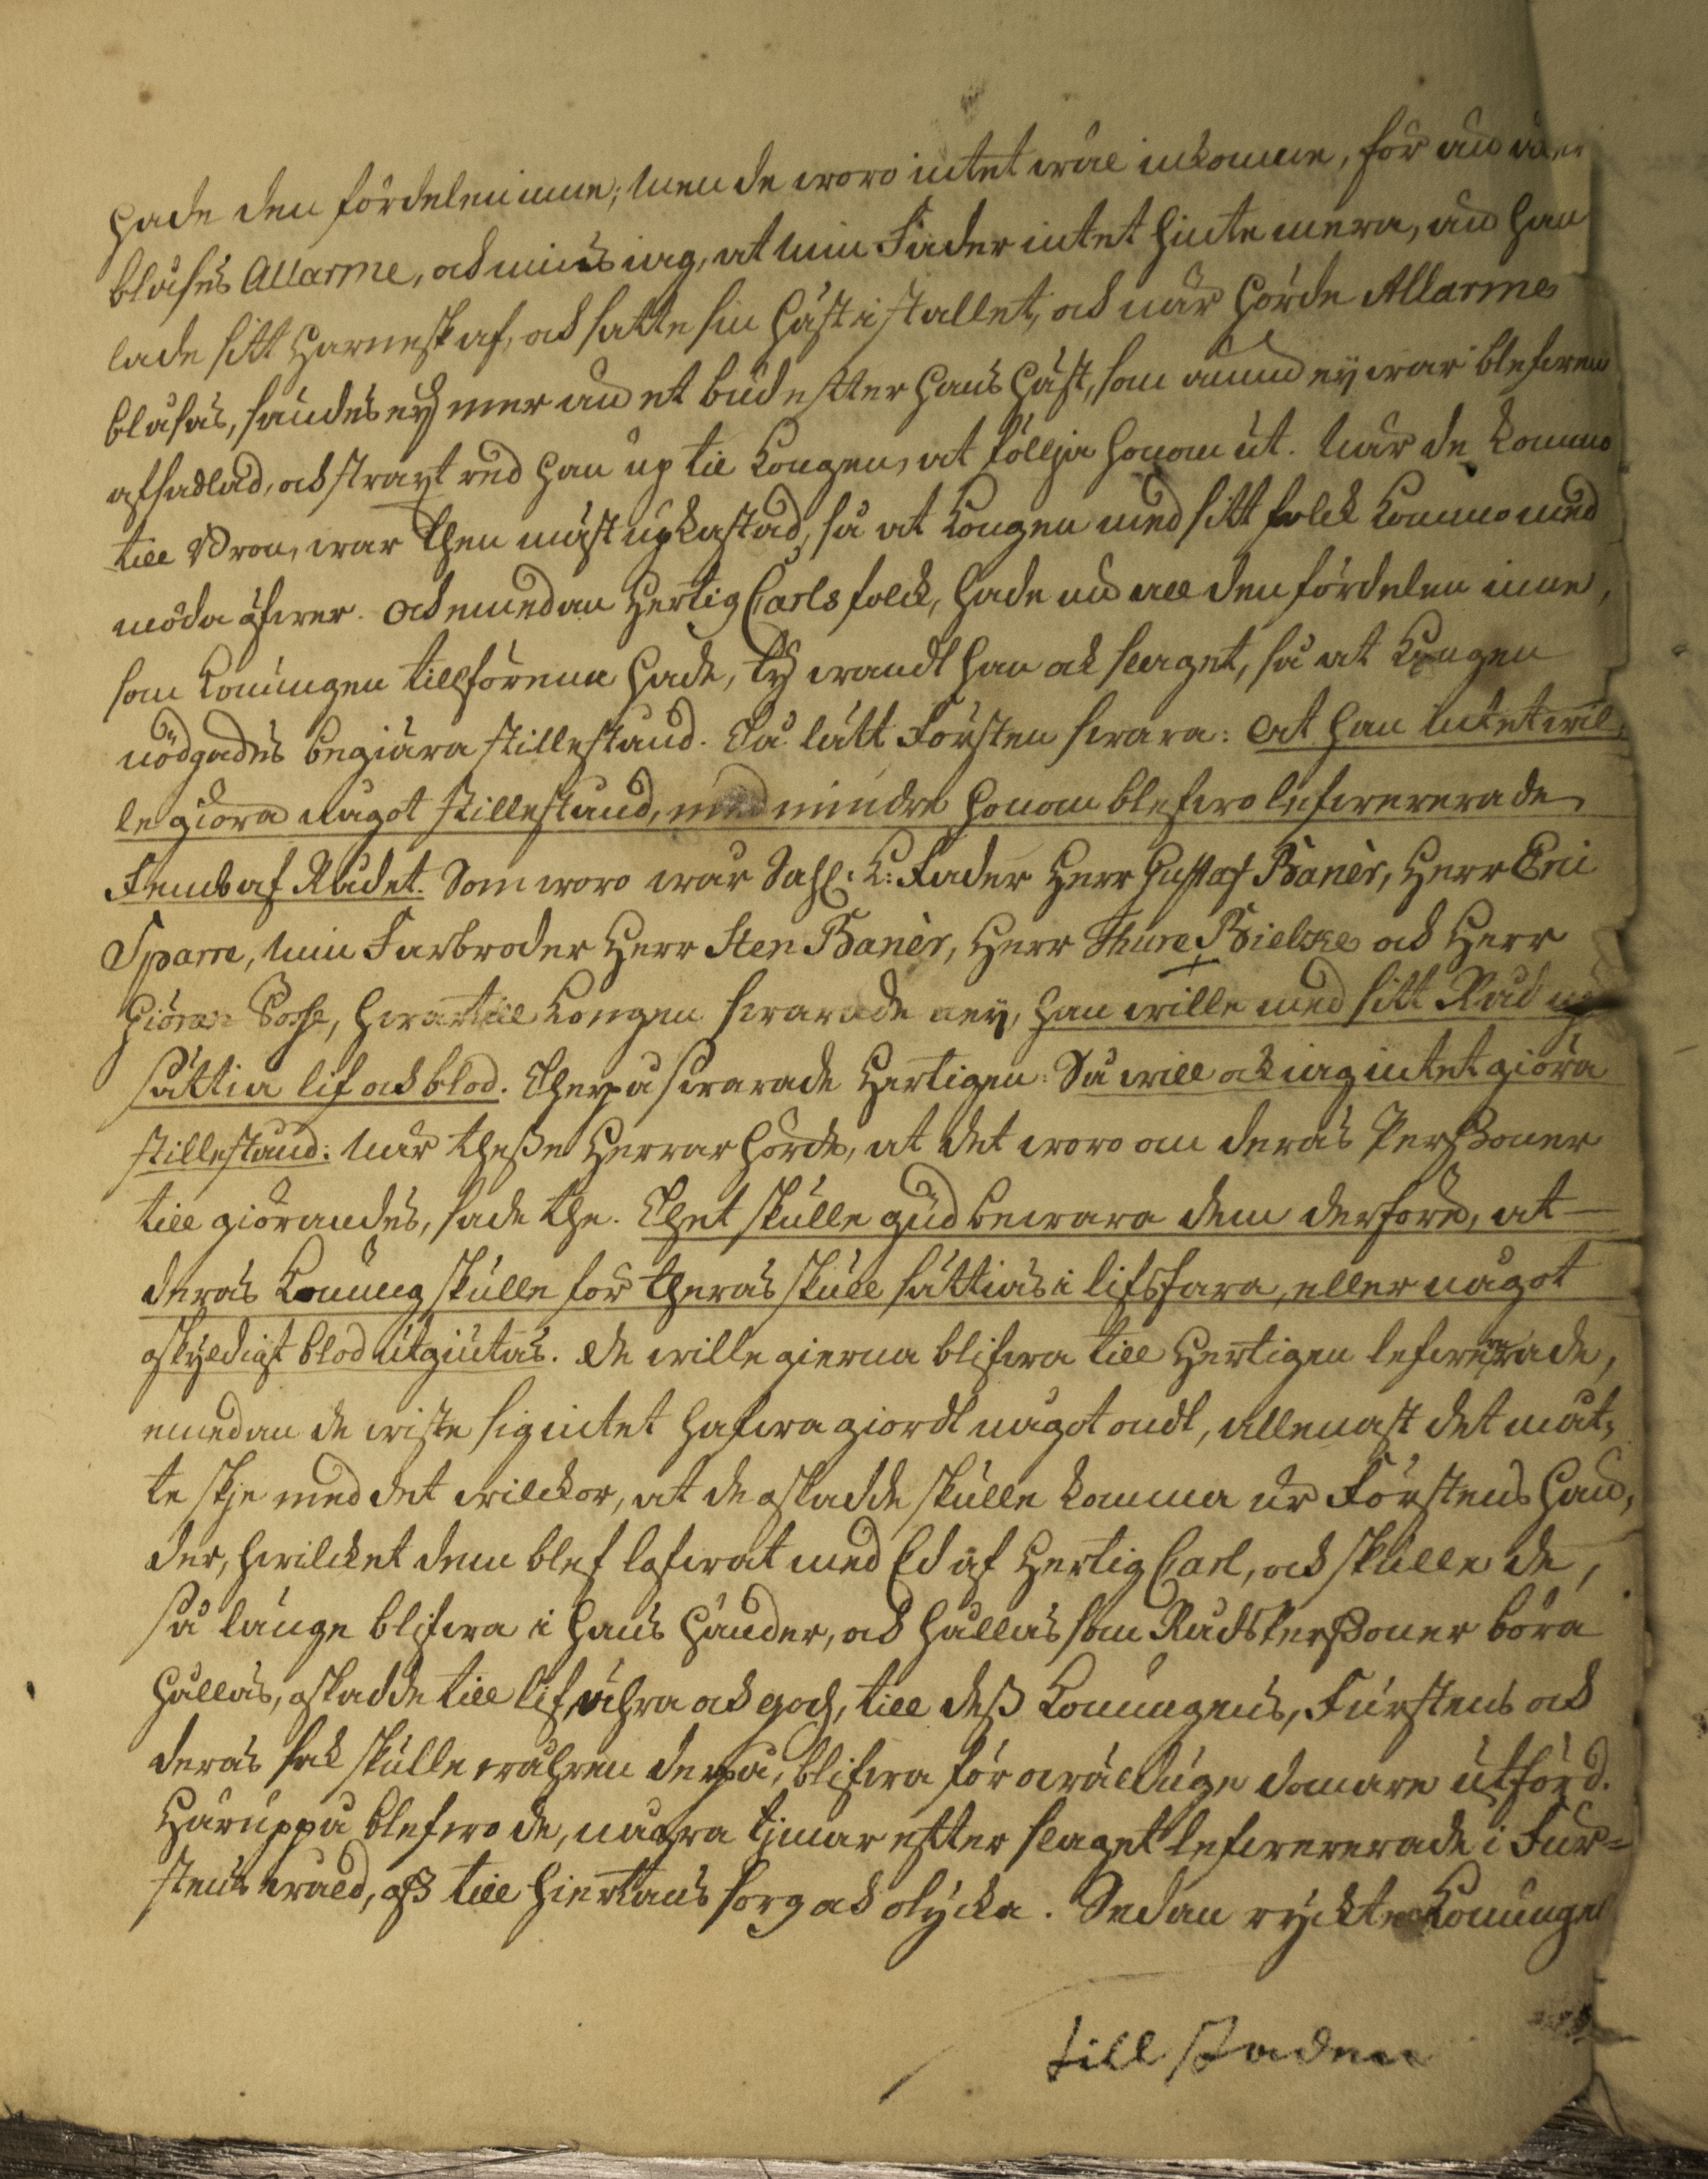 hade den fördelen inne; men de woro intet wäl inkomne, för än där
blåses Allarme, och minns iag, at min Fader intet hinte mera, än han
lade sitt Harnesk af, och satte sin häst i stallet, och när hörde Allarme
blåsas, sändes ey mer än et bud effter hans häst, som ännu ey war blefwen
afsadlad, och straxt red han up til Kongen, at föllja honom ut. När de kommo
till Broen, war then mäst upkastad, så at Kongen med sitt folck kommo med
möda öfwer. Och emedan Hertig Carls folck, hade nu all den fördelen inne,
som Konungen tillförenne hade, ty wandt han ock slaget, så at Kongen
nödgades begiära stillestånd. Då lätt Försten swara: At han intet wil,
le giöra något stillestånd, med mindre honom blefwo lefwererade
Femb af Rådet. Som woro wår Sahl: K: Fader Herr Gustaf Banèr, Herr Eric
Sparre, min Farbroder Herr Sten Banèr, Herr Thure Bielcke och Herr
Giöran Posse, hwartill Kongen swarade ney, han wille med sitt Råd up
sättia lif och blod. Therpå swarade Hertigen: Så will ock iag intet giöra
stillestånd: När theße Herrar hörde, at det woro om deras Perßoner
till giörandes, sade the. Thet skulle gud bewara dem derföre, at
deras Konung skulle för theras skull sättias i lifsfara, eller något
oskyldigt blod utgiutas. De wille gierna blifwa till Hertigen lefwererade,
emedan de wiste sig intet hafwa giordt något ondt, allenast det måt,
te skje med det wilckor, at de oskadde skulle komma ur Förstens hän,
der, hwilcket dem blef lofwat med Ed af Hertig Carl, och skulle de,
så länge blifwa i hans händer, och hållas som Rådsperßoner böra
hållas, oskadde till lif, ähra och gods, till deß Konungens, Furstens och
deras sak skulle währen derpå, blifwa för owälduge domare utförd.
Häruppå blefwo de, några tjmar effter slaget lefwererade i Fur=
stens wåld, oß till hiertans sorg och olycka. Sedan ryckte Konungen
till staden